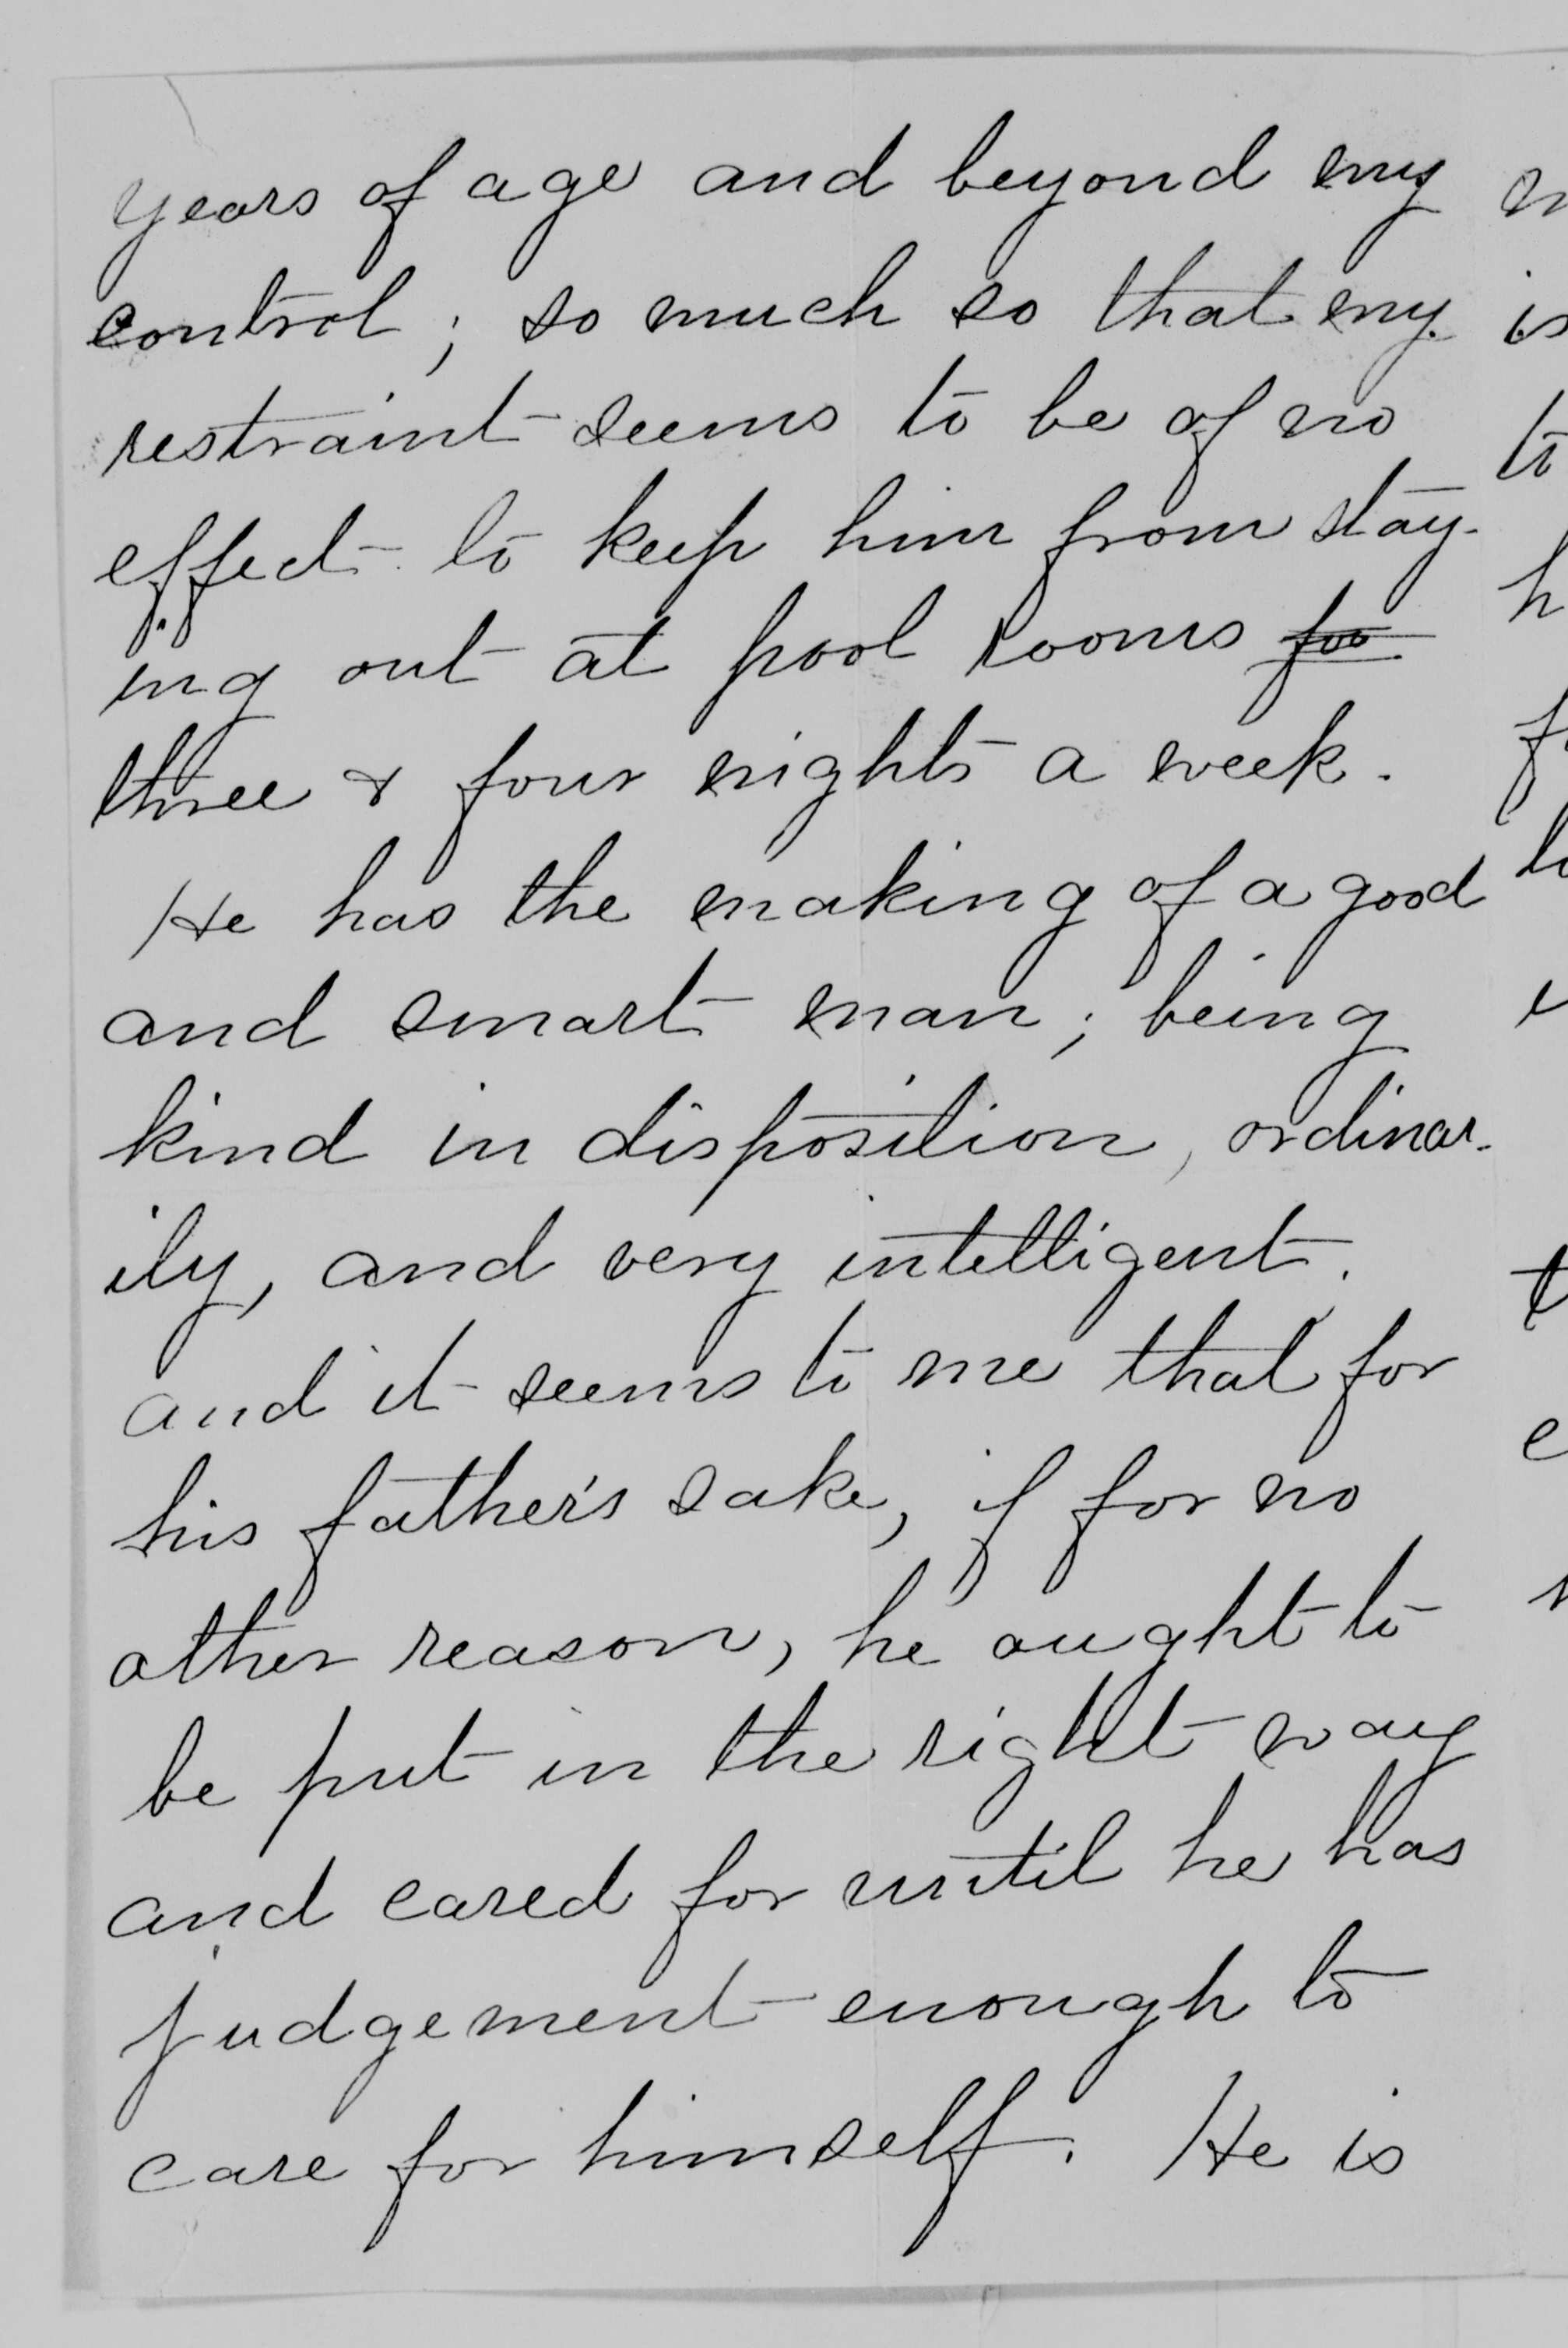 years of age and beyond my
control; so much so that my
restraint seems to be of no
effect to keep him from stay-
ing out at pool rooms for
three & four nights a week.
He has the making of a good
and smart man; being
kind in disposition, ordinar-
ily, and very intelligent.
and it seems to me that for
his father's sake, if for no
other reason, he ought to
be put in the right way
and cared for until he has
judgement enough to
care for himself. He is